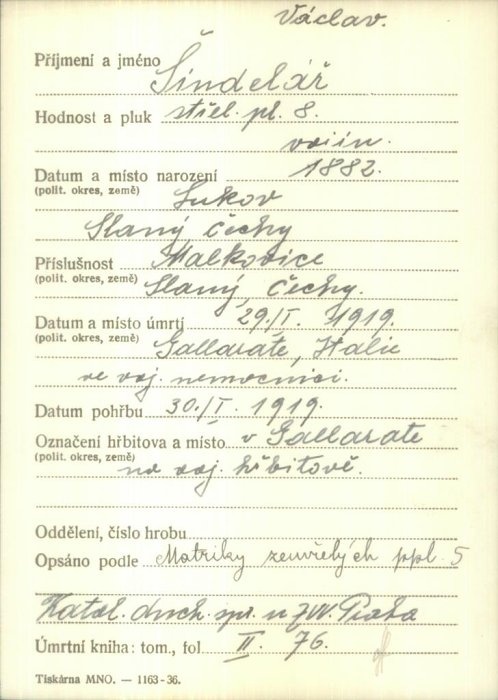 Václav.
Příjmení a jméno Šindelář
Hodnost a pluk střel. pl. 8.
vojín.
Datum a místo narození 1882.
(polit. okres, země) Lukov
Slaný Čechy
Příslušnost Malkovice
(polit. okres, země) Slaný, Čechy.
Datum a místo úmrtí 29/I. 1919.
(polit. okres, země) Gallarate, Italie
ve voj. nemocnici.
Datum pohřbu 30./I. 1919.
Označení hřbitova a místo v Gallarate
(polit. okres, země) na voj. hřbitově.
Oddělení, číslo hrobu
Opsáno podle Matriky zemřelých ppl. 5
Katol. duch. spr. u ZVV. Praha
Úmrtní kniha: tom., fol II. 76.
Tiskárna MNO. — 1163-36.